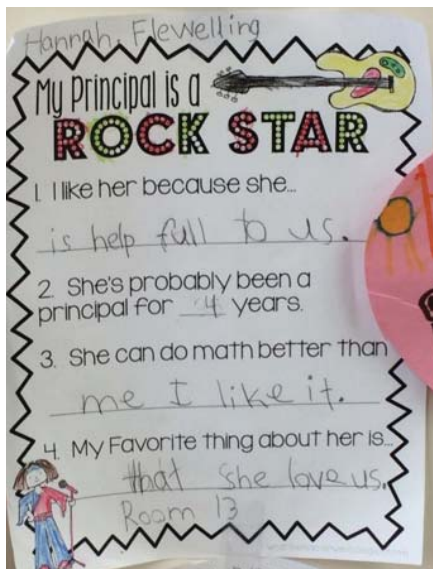 Hannah, Flewelling
My Principal is a
ROCK STAR
1. I like her because she...
is help full to us.
2. She's probably been a
principal for 4 years.
3. She can do math better than
me I like it.
4. My Favorite thing about her is...
that she love us.
Room 13